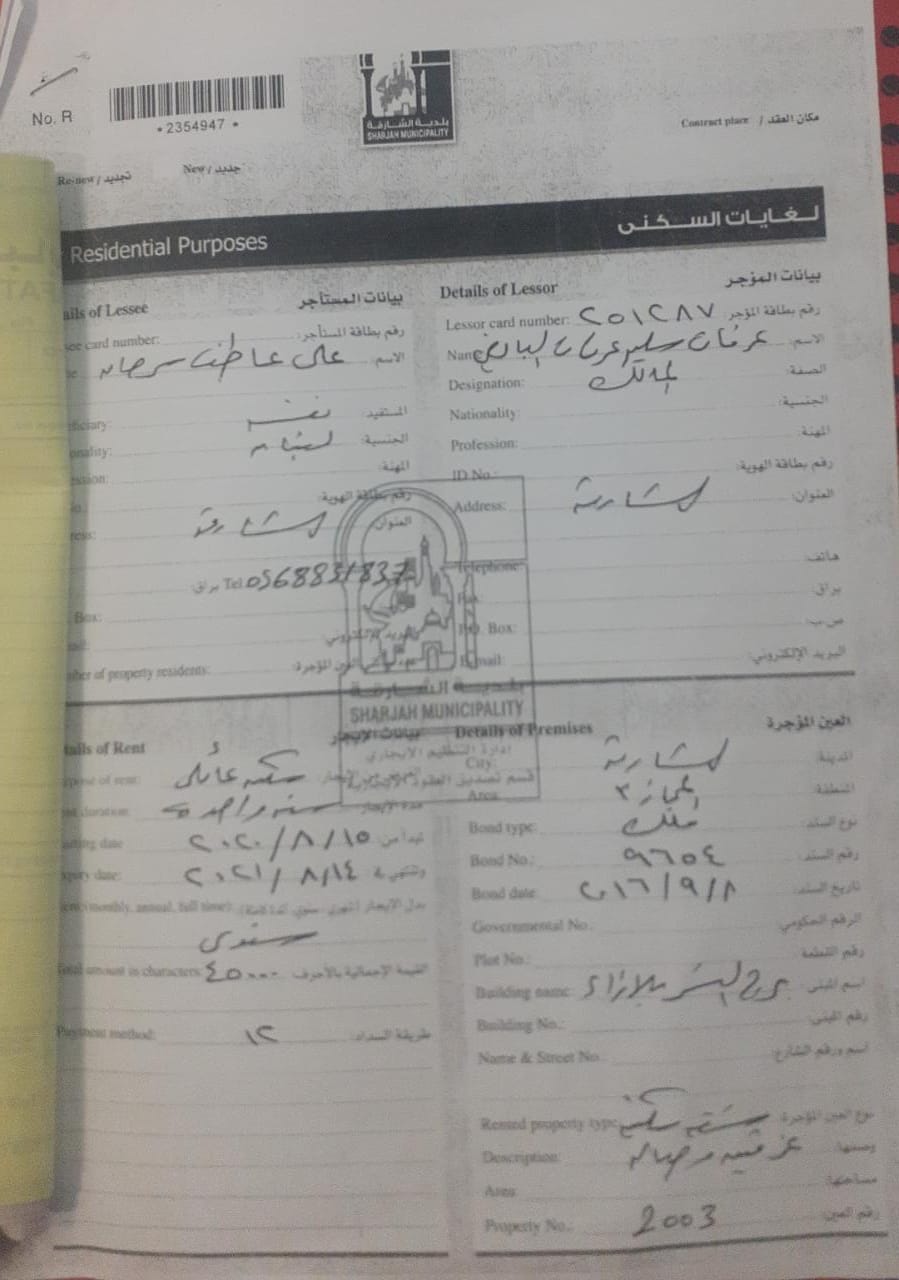 No. R
* 2354947 *
بلدية الشارقة
SHARJAH MUNICIPALITY
Contract place / مكان العقد
Re-new / تجديد New / جديد
Residential Purposes لغايات السكنى
Details of Lessor بيانات المؤجر
Lessor card number: ٢٥١٢٨٧ رقم بطاقة المؤجر:
Name عرفان سليم عرفان الاسم:
Designation: المالك الصفة:
Nationality: الجنسية:
Profession: المهنة:
ID No.: رقم بطاقة الهوية:
Address: الشارقة العنوان:
Telephone: هاتف:
براق:
P.O. Box: ص.ب:
Email: البريد الإلكتروني:
ails of Lessee بيانات المستأجر
card number: رقم بطاقة المستأجر:
على الاسم:
ficiary: نفسه المستفيد:
onality: لبنان الجنسية:
ssion: المهنة:
رقم بطاقة الهوية:
ress: الشارقة العنوان:
Tel 0568831837 براق
Box:
ail: البريد الإلكتروني:
ber of property residents:
بلدية الشارقة
SHARJAH MUNICIPALITY
إدارة التنظيم الإيجاري
Details of Premises العين المؤجرة
City: الشارقة المدينة:
Area: المجاز ٣ المنطقة:
Bond type: ملك نوع السند:
Bond No.: ٩٦٥٤ رقم السند:
Bond date: ٢٠١٦/٩/٨ تاريخ السند:
Governmental No.: الرقم الحكومي:
Plot No.: رقم القطعة:
Building name: برج اسم المبنى:
Building No.: رقم المبنى:
Name & Street No.: اسم ورقم الشارع:
Rented property type: شقة سكنية نوع العين المؤجرة:
Description: غرفتين وصالة وصفها:
Area: مساحتها:
Property No.: 2003 رقم العين:
tails of Rent بيانات الإيجار
pose of rent: سكن عائلي
duration: سنة واحدة مدة الإيجار:
rting date ٢٠٢٠/٨/١٥ تبدأ من:
piry date: ٢٠٢١/٨/١٤ وتنتهي في:
(monthly, annual, full time):
سنوي
Total amount in characters: ٤٥٠٠٠ القيمة الإجمالية بالأحرف:
Payment method: ١٢ طريقة السداد: